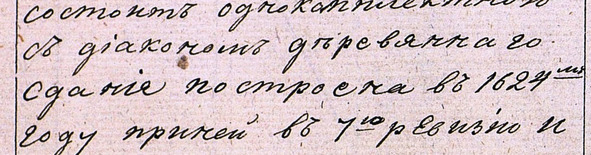 состоитъ однокомплектною
съ діакономъ дѣревяннаго
зданія построена въ 1624мъ
году приней въ 7ю ревизію и